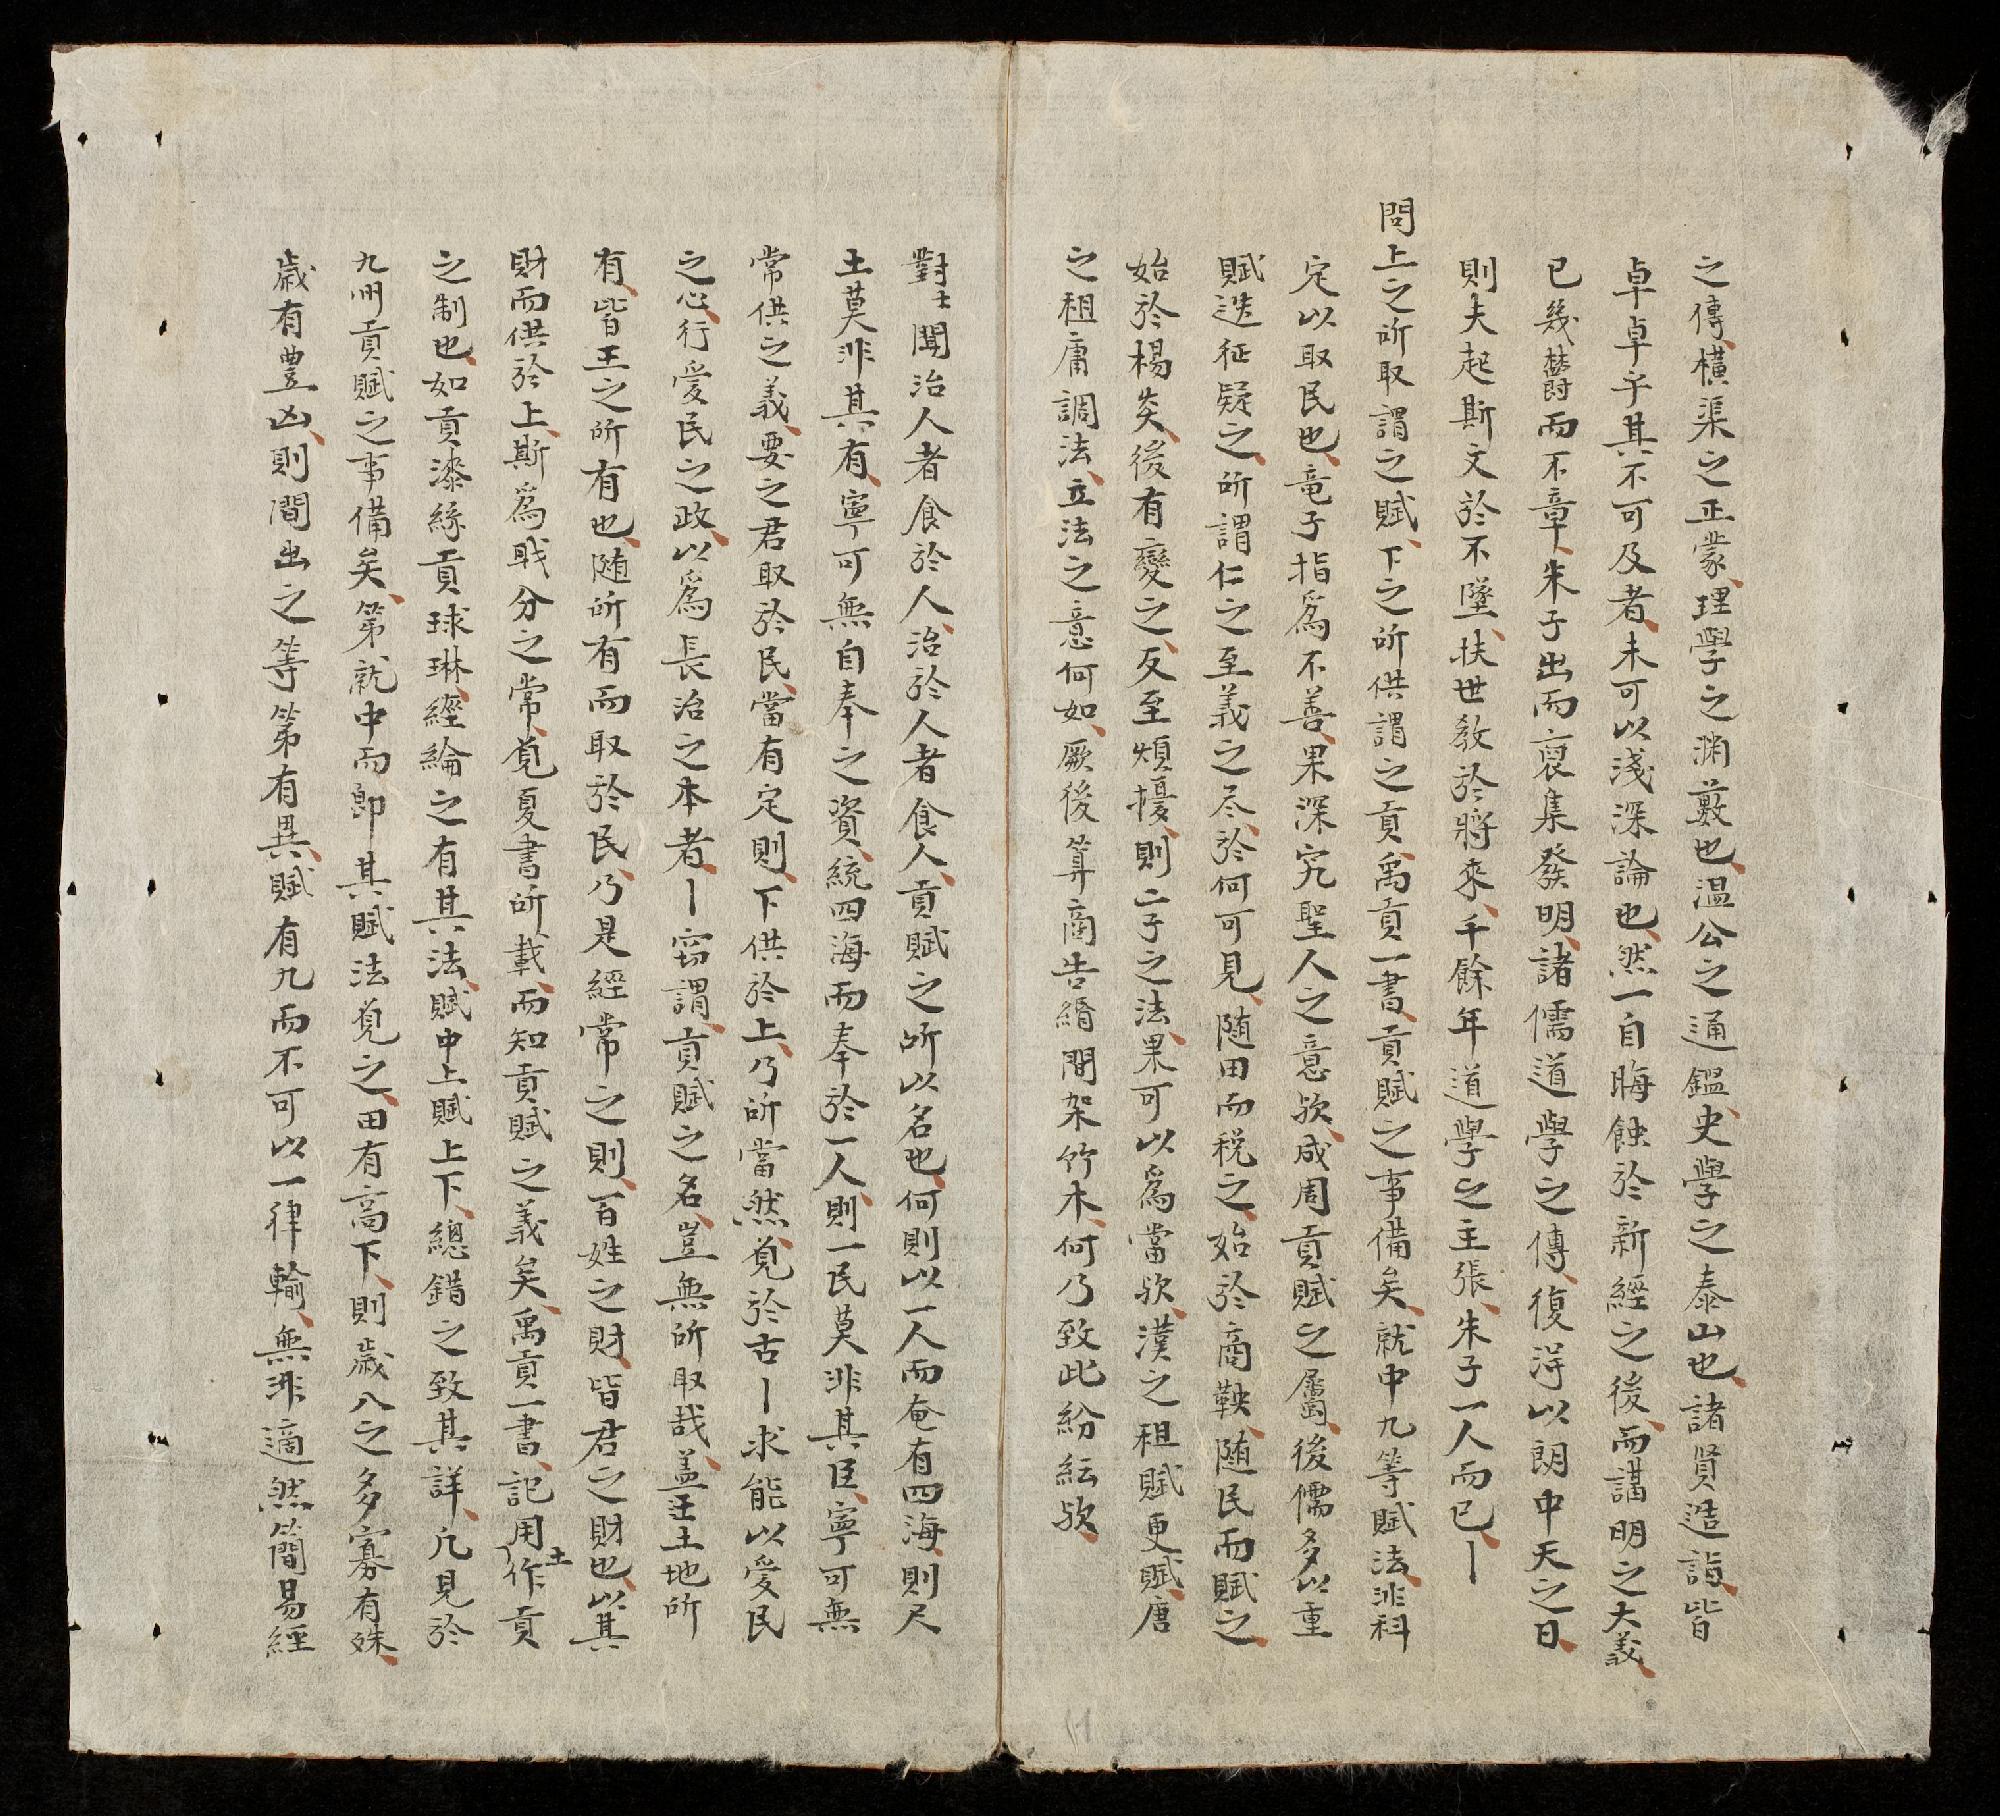 之傳、橫渠之正蒙、理學之淵藪也、溫公之通鑑、史學之泰山也、諸賢造詣、皆
卓卓乎其不可及者、未可以淺深論也、然一自晦蝕於新經之後、而講明之大義
已幾欝而不章、朱子出而裒集發明、諸儒道學之傳、復淂以朗中天之日、
則夫起斯文於不墜、扶世教於將來、千餘年道學之主張、朱子一人而已、〡
問上之所取謂之賦、下之所供謂之貢、禹貢一書、貢賦之事備矣、就中九等賦法、非科
定以取民也、竜子指爲不善、果深究聖人之意欤、成周貢賦之屬、後儒多以重
賦迭征疑之、所謂仁之至義之尽、於何可見、随田而税之、始於商鞅、随民而賦之、
始於楊炎、後有變之、反至煩擾、則二子之法、果可以爲當欤、漢之租賦更賦、唐
之租庸調法、立法之意何如、厥後算商告緡間架竹木、何乃致此紛紜欤、
對士聞治人者食於人、治於人者食人、貢賦之所以名也、何則以一人而奄有四海、則尺
土莫非其有、寧可無自奉之資、統四海而奉於一人、則一民莫非其臣、寧可無
常供之義、要之君取於民、當有定則、下供於上、乃所當然、覓於古〡求能以愛民
之心、行愛民之政、以爲長治之本者、〡窃謂、貢賦之名、豈無所取哉、盖王土地所
有、皆王之所有也、随所有而取於民、乃是經常之則、百姓之財、皆君之財也、以其
財而供於上、斯爲戝分之常、覓夏書所載、而知貢賦之義矣、禹貢一書、記用作土貢
之制也、如貢漆絲貢球琳、經綸之有其法、賦中上賦上下、總錯之致其詳、凢見於
九州貢賦之事備矣、第就中而即其賦法覓之、田有高下、則歲入之多寡有殊、
歲有豊凶、則間出之等第有異、賦有九而不可以一律輸、無非適然簡易經